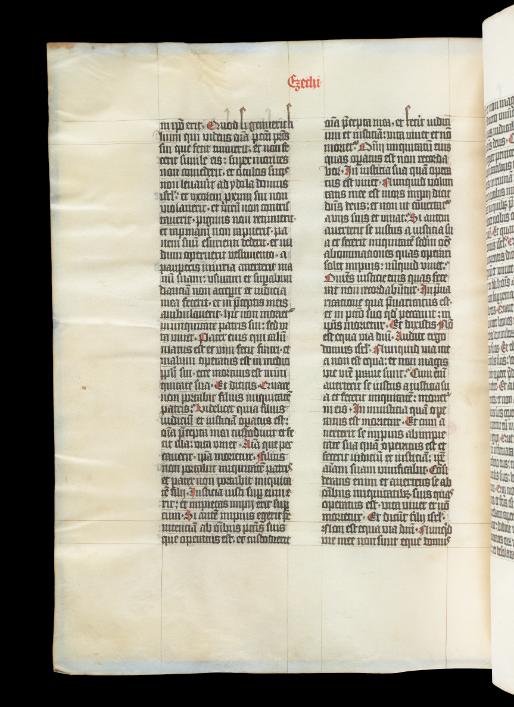 Ezechi
in ipso erit. Quod si genuerit fi
lium qui videns omnia pctā pris
sui que fecit timuerit. et non fe
cerit simile eis: super montes
non comederit. et oculos suos
non levaūit ad ydola domus
isrl. et uxorem proximi sui non
violauerit. et virum non contris
tauerit. pignus non retinuerit.
et rapinam non rapuerit. pa
nem suū esurienti dederit. et nu
dum operuerit vestimento. a
pauperis iniuria auerterit ma
nū suam. usuram et suphabun
dantiam non accepit et iudicia
mea fecerit. et in preceptis meis
ambulauerit. hic non moriet
in iniquitate patris sui. sed vi
ta vivet. Pater eius qui calum
niatus est et vim fecit fratri. et
malum operatus est in medio
ppli sui. ecce mortuus est in ini
quitate sua. Et dicitis. Quare
non portabit filius iniquitatē
patris? Videlicet quia filius
iudiciū et iusticiā operatus est.
omīa pcepta mea custodiuit et fe
cit illa. vita vivet. Aīa que pec
cauerit. ipsa morietur. Filius
non portabit iniquitatē patris
et pater non portabit iniquita
tē filij. Iusticia iusti sup eum e
rit. et impietas impij erit sup
eum. Si autē impius egerit pe
nitentiā ab oībus pctīs suis
que operatus est. et custodierit
omīa pcepta mea. et fecerit iudici
um et iusticiā. vita vivet et nō
moriet. Oīm iniquitatum eius
quas opatus est non recorda
bor. In iusticia sua quā opera
tus est vivet. Nunquid volun
tatis mee est mors impij dicit
dūs deus. et non ut cōuertat
a vijs suis et vivat. Si autem
auerterit se iustus a iusticia su
a et fecerit iniquitatē scdm oēs
abominationes quas operari
solet impius. nūquid vivet?
Omēs iusticie eius quas fece
rat non recordabūtur. In pua
ricatione qua puaricatus est.
et in pctō suo qd peccauit. in
ipsis morietur. Et dixistis. Nō
est equa via dnī. Audite ergo
domus isrl. Nunquid via me
a non est equa. et non magis
vie vrē praue sunt? Cum enī
auerterit se iustus a iusticia su
a et fecerit iniquitatē. moriet
in eis. In iniusticia quā ope
ratus est morietur. Et cum a
uerterit se impius ab impie
tate sua quā operatus est et
fecerit iudiciū et iusticiā. ipse
aīam suam viuificabit. Consi
derans enim et auertens se ab
oībus iniquitatibus suis quas
operatus est. vita vivet et nō
morietur. Et dicūt filij isrl.
Non est equa via dnī. Nunqd
vie mee non sunt eque domus